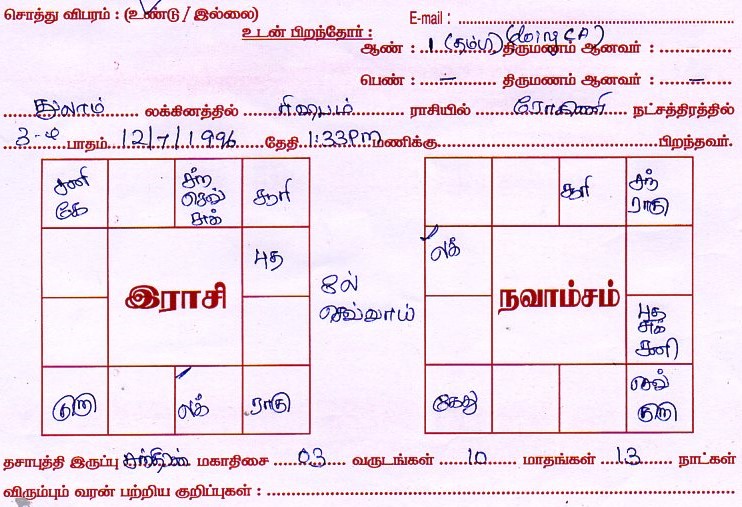 சொத்து விபரம் : (உண்டு / இல்லை)
E-mail :
உடன் பிறந்தோர் :
ஆண் : 1 (தம்பி) (doing CA) திருமணம் ஆனவர் :
பெண் : – திருமணம் ஆனவர் : –
துலாம் லக்கினத்தில் ரிஷபம் ராசியில் ரோகிணி நட்சத்திரத்தில்
3-ம் பாதம் 12/7/1996 தேதி 1:33PM மணிக்கு பிறந்தவர்.
சனி கே
சந் செவ் சுக்
சூரி
புத
இராசி
குரு
லக்
ராகு
8ல் செவ்வாய்
சூரி
சந் ராகு
லக்
நவாம்சம்
புத சுக் சனி
கேது
செவ் குரு
தசாபுத்தி இருப்பு சந்திரன் மகாதிசை 03 வருடங்கள் 10 மாதங்கள் 13 நாட்கள்
விரும்பும் வரன் பற்றிய குறிப்புகள் :